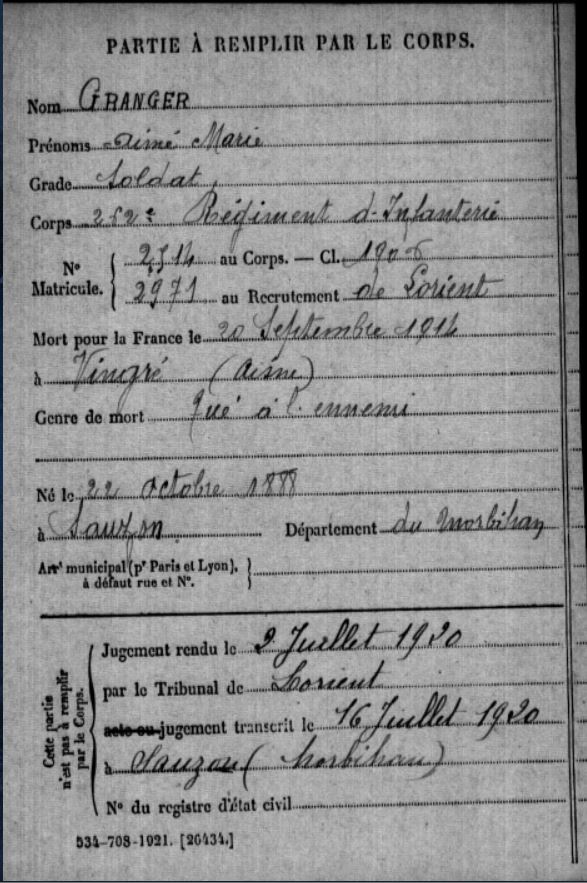 PARTIE À REMPLIR PAR LE CORPS.
Nom GRANGER
Prénoms Aimé Marie
Grade Soldat
Corps 262e Régiment d'Infanterie
No Matricule. { 2514 au Corps. — Cl. 1906
2971 au Recrutement de Lorient
Mort pour la France le 20 Septembre 1914
à Vingré (Aisne)
Genre de mort Tué à l'ennemi
Né le 22 octobre 1888
à Sauzon Département du Morbihan
Arrt municipal (pr Paris et Lyon), à défaut rue et No. }
Cette partie n'est pas à remplir par le Corps.
Jugement rendu le 2 Juillet 1920
par le Tribunal de Lorient
acte ou jugement transcrit le 16 Juillet 1920
à Sauzon (Morbihan)
No du registre d'état civil
534-708-1921. [26434.]